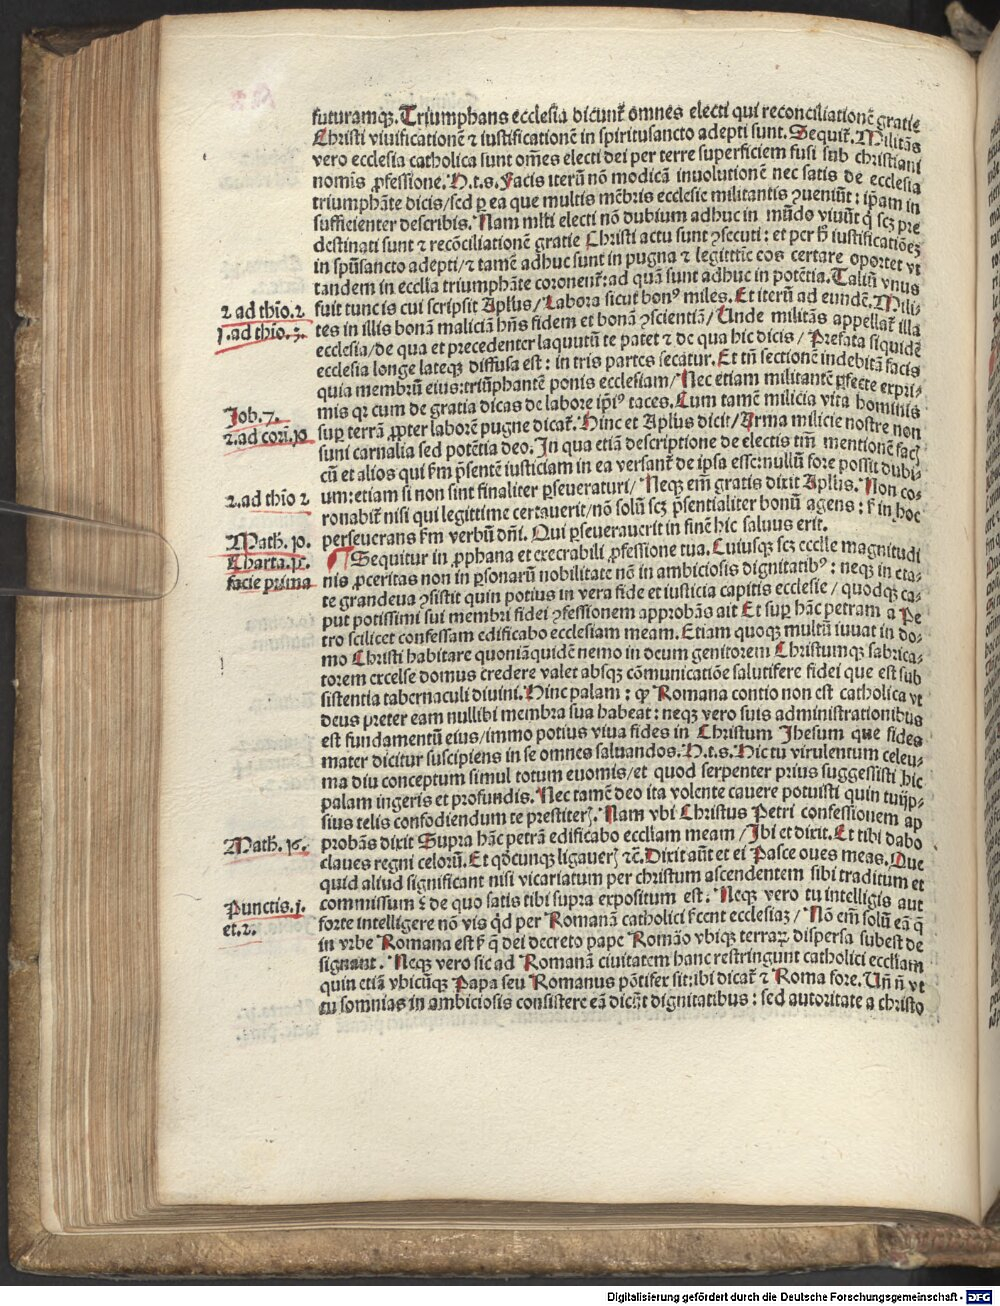 futuramqꝫ. Triumphans ecclesia dicunt᷑ omnes electi qui reconciliationē gratie
Christi vivificationē ⁊ iustificationē in spiritusancto adepti sunt. Sequit᷑. Militās
vero ecclesia catholica sunt om̄es electi dei per terre superficiem fusi sub christiani
nomīs ꝓfessione. H.t.s. Facis iterū nō modicā involutionē nec satis de ecclesia
triumphāte dicis/ sed ꝑ ea que multis mēbris ecclesie militantis ꝯveniūt: ip̄am in
sufficienter describis. Nam ml̓ti electi nō dubium adhuc in mūdo vivūt q̇ scꝫ pre
destinati sunt ⁊ recōciliationē gratie Christi actu sunt ꝯsecuti: et per h̄ iustificatiōeꝫ
in sp̄usancto adepti/ ⁊ tamē adhuc sunt in pugna ⁊ legittīe eos certare oportet vt
tandem in eccl̓ia triumphāte coronent᷑: ad quā sunt adhuc in potētia. Taliū vnus
2 ad thio. 2 fuit tunc is cui scripsit Apl̓us/ Labora sicut bonꝰ miles. Et iterū ad eundē. Mili-
1. ad thio. 3. tes in illis bonā maliciā hn̄s fidem et bonā ꝯscientiā/ Unde militās appellat᷑ illa
ecclesia/ de qua et precedenter laquutū te patet ⁊ de qua hic dicis/ Prefata siquidē
ecclesia longe lateqꝫ diffusa est: in tris partes secatur. Et tn̄ sectionē indebitā facis
quia membrū eius: triūphantē ponis ecclesiam/ Nec etiam militantē ꝑfecte expri-
Job. 7. mis qr cum de gratia dicas de labore ip̄iꝰ taces. Cum tamē milicia vita hominis
2. ad corī. 10 suꝑ terrā ꝓpter laborē pugne dicat᷑. Hinc et Apl̓us dicit/ Arma milicie nostre non
sunt carnalia sed potētia deo. In qua etiā descriptione de electis tm̄ mentionē facis
cū et alios qui fm̄ p̄sentē iusticiam in ea versant᷑ de ipsa esse: nullū fore possit dubi-
2. ad thio 2 um: etiam si non sint finaliter ꝑseveraturi/ Neqꝫ em̄ gratis dixit Apl̓us. Non co-
ronabit᷑ nisi qui legittime certaverit/ nō solū scꝫ p̄sentialiter bonū agens: s̄ in hoc
Math. 10. perseverans fm̄ verbū dn̄i. Qui ꝑseveraverit in finē hic salvus erit.
Charta. pͬ. ¶ Sequitur in ꝓphana et execrabili ꝓfessione tua. Cuiusqꝫ scꝫ eccl̓ie magnitudi
facie prima nis ꝓceritas non in ꝑsonarū nobilitate nō in ambiciosis dignitatibꝰ: neqꝫ in eta-
te grandeva ꝯsistit quin potius in vera fide et iusticia capitis ecclesie/ quodqꝫ ca-
put potissimi sui membri fidei ꝯfessionem approbās ait Et suꝑ hāc petram a Pe
tro scilicet confessam edificabo ecclesiam meam. Etiam quoqꝫ multū iuvat in do-
mo Christi habitare quoniāquidē nemo in deum genitorem Christumqꝫ fabrica-
torem excelse domus credere valet absqꝫ cōmunicatiōe salutifere fidei que est sub
sistentia tabernaculi divini. Hinc palam: ꝙ Romana contio non est catholica vt
deus preter eam nullibi membra sua habeat: neqꝫ vero suis administrationibus
est fundamentū eius/ immo potius viva fides in Christum Jhesum que fides
mater dicitur suscipiens in se omnes salvandos. H.t.s. Hic tu virulentum celeu-
ma diu conceptum simul totum evomis/ et quod serpenter prius suggessisti hic
palam ingeris et profundis. Nec tamē deo ita volente cavere potuisti quin tuijp-
sius telis confodiendum te prestiteris. Nam vbi Christus Petri confessionem ap
Math. 16. probās dixit Supra hāc petrā edificabo eccl̓iam meam/ Ibi et dixit. Et tibi dabo
claves regni celorū. Et qdcunqꝫ ligaveris ⁊c̄. Dixit aūt et ei Pasce oves meas. Que
quid aliud significant nisi vicariatum per christum ascendentem sibi traditum et
Punctis. j. commissum s̄ de quo satis tibi supra expositum est. Neqꝫ vero tu intelligis aut
et. 2. forte intelligere nō vis qd per Romanā catholici sc̄ent ecclesiaꝫ/ Nō em̄ solū eā q̄
in vrbe Romana est s̄ q̄ dei decreto pape Romāo vbiqꝫ terraꝝ dispersa subest de
signant. Neqꝫ vero sic ad Romanā civitatem hanc restringunt catholici eccl̓iam
quin etiā vbicūqꝫ Papa seu Romanus pōtifex sit: ibi dicat᷑ ⁊ Roma fore. Un̄ n̄ vt
tu somnias in ambiciosis consistere eā dicūt dignitatibus: sed autoritate a christo
Digitalisierung gefördert durch die Deutsche Forschungsgemeinschaft - DFG